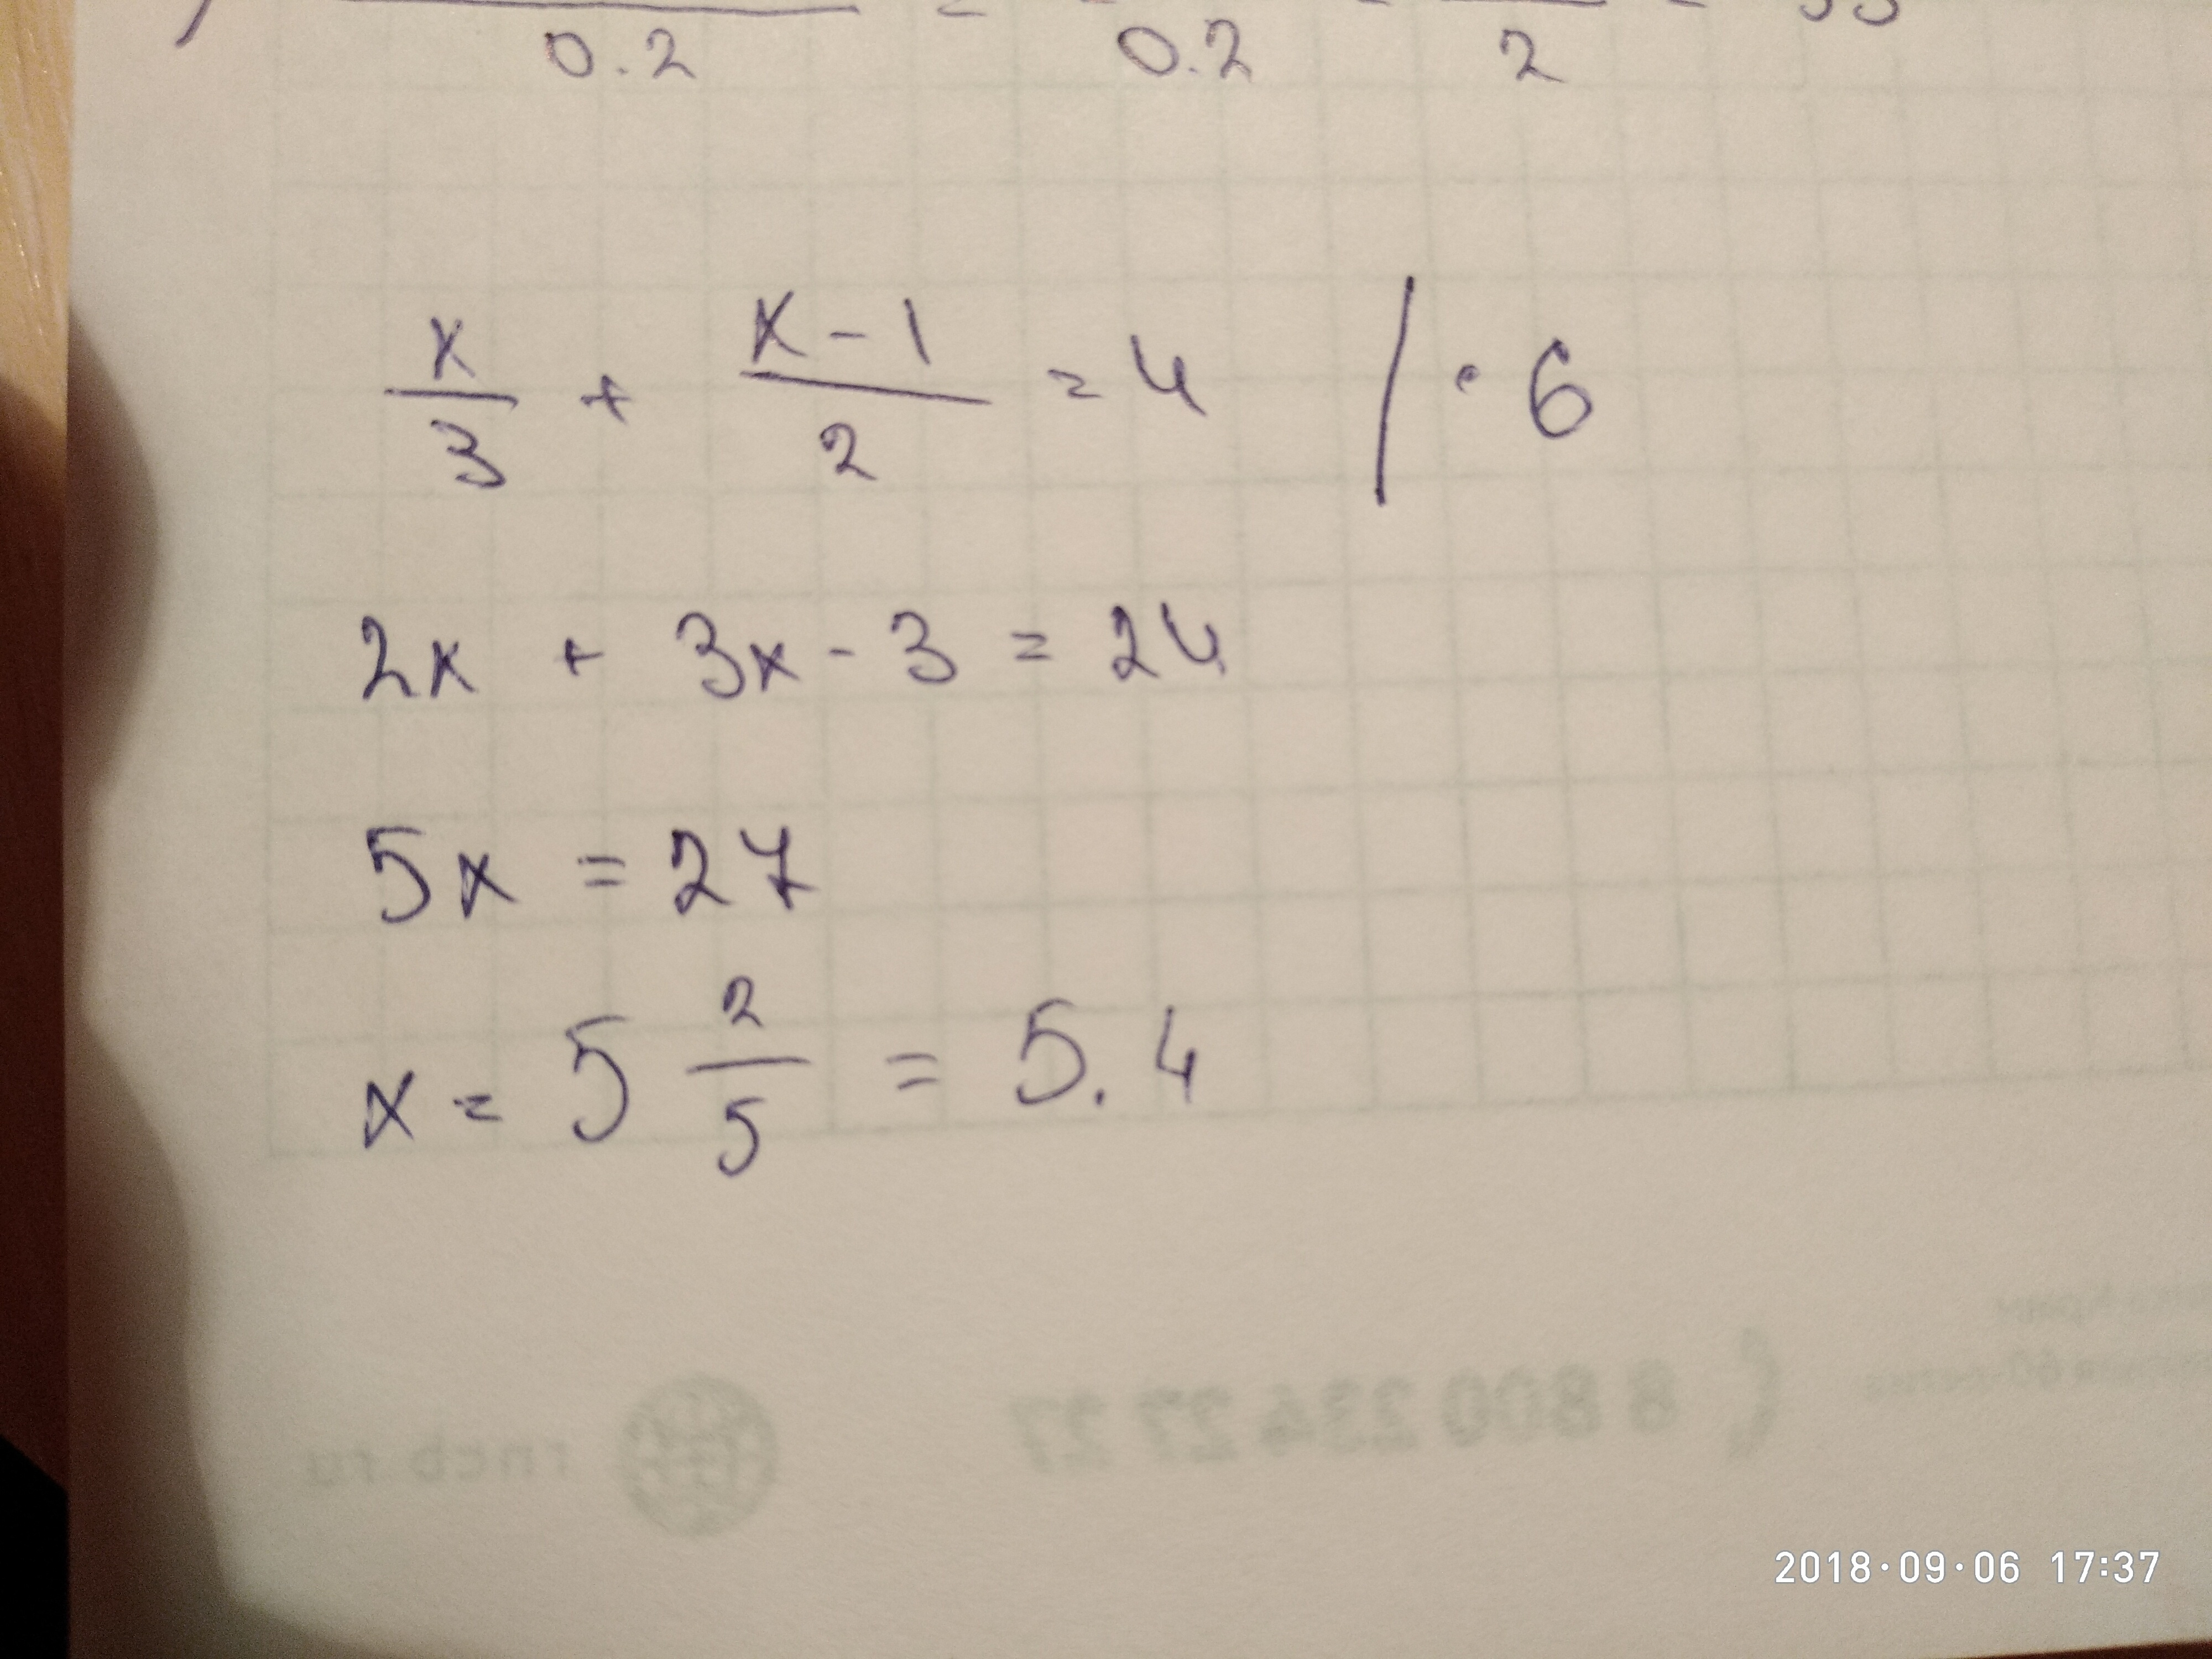 0.2 = 0.2 = 2 =
x/3 + x-1/2 = 4 | · 6
2x + 3x - 3 = 24
5x = 27
x = 5 2/5 = 5.4
8 800 234 27 27
rncb.ru
2018·09·06 17:37